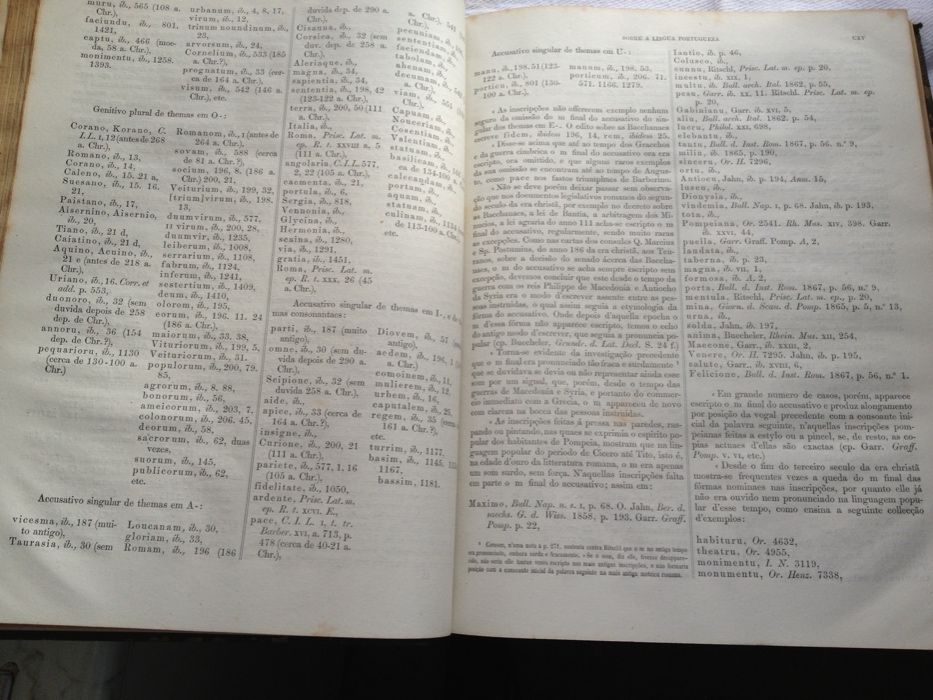 muru, ib., 565 (108 a.
Chr.),
faciundu, ib., 801.
1421,
captu, ib., 466 (moe-
da, 58 a. Chr.),
monimentu, ib., 1258.
1393.
Genitivo plural de themas em O-:
Corano, Korano, C.
I. L. I, 12 (antes de 268
a. Chr.),
Romano, ib., 13,
Corano, ib., 14,
Caleno, ib., 15. 21 a,
Suesano, ib., 15. 16.
21,
Paistano, ib., 17,
Aisernino, Aisernio,
ib., 20,
Tiano, ib., 21 d,
Caiatino, ib., 21 d,
Aquino, Acuino, ib.,
21 e (antes de 218 a.
Chr.),
Uriano, ib., 16. Corr. et
add. p. 553,
duonoro, ib., 32 (sem
duvida depois de 258
dep. de Chr.),
annoru, ib., 36 (154
dep. de Chr.?),
pequarioru, ib., 1130
(cerca de 130-100 a.
Chr.)
urbanum, ib., 4, 8, 17,
virum, ib., 12,
trinum noundinum, ib.,
23,
arvorsum, ib., 24,
Cornelium, ib., 533 (185
a. Chr.?),
prognatum, ib., 33 (cer-
ca de 164 a. Chr.),
visum, ib., 542 (146 a.
Chr.), etc.
Romanom, ib., 1 (antes de
264 a. Chr.),
sovam, ib., 588 (cerca
de 81 a. Chr.?),
socium, 196, 8, (186 a.
Chr.) 200, 21,
Veiturium, ib., 199, 32,
[trium]virum, ib., 198.
13,
duumvirum, ib., 577,
II virum, ib., 200, 28,
duumvir, ib., 1235,
leiberum, ib., 1008,
serrarium, ib., 1108,
fabrum, ib., 1124,
inferum, ib., 1241,
sestertium, ib., 1409,
deum, ib., 1410,
olorom, ib., 195,
eorum, ib., 196. 11. 24
(186 a. Chr.),
maiorum, ib., 33. 38,
Vituriorum, ib., 199, 5,
Veituriorum, ib., 31.
populorum, ib., 200, 79.
85,
agrorum, ib., 8. 88,
bonorum, ib., 56,
ameicorum, ib., 203, 7,
colonorum, ib., 206. 45,
deorum, ib., 58,
sacrorum, ib., 62, duas
vezes,
suorum, ib., 145,
publicorum, ib., 62,
etc.
Accusativo singular de themas em A-:
vicesma, ib., 187 (mui-
to antigo),
Taurasia, ib., 30 (sem
Loucanam, ib., 30.
gloriam, ib., 33,
Romam, ib., 196 (186
duvida dep. de 290 a.
Chr.),
Cisauna,
Corsica, ib., 32 (sem
duv. dep. de 258 a.
Chr.),
Aleriaque, ib.,
magna, ib., 34,
sapientia, ib., 34,
sententia, ib., 198, 42
(123-122 a. Chr.),
terra, ib., 200, 50 (111
a. Chr.),
Italia, ib.,
Roma, Prisc. Lat. m.
ep. R. t. XXVIII a. 5
(111 a. Chr.),
angolaria, C. I. L. 577,
2, 22 (105 a. Chr.),
caementa, ib., 21,
portula, ib., 6,
Sergia, ib., 818,
Vennonia, ib.,
Glycina, ib.,
Hermonia, ib.,
scaina, ib., 1280,
via, ib., 1291,
gratia, ib., 1451.
Roma, Prisc. Lat. m.
ep. R. t. XXX, 26 (45
a. Chr.),
a. Chr.),
pecuniam,
sententiam,
faciendam,
tabolam,
ahenam,
decumam,
viam, ib., 551
Capuam,
Nouceriam,
Cosentiam,
Valentiam,
statuam,
basilicam, ib.,
ca de 134-100
calecandam,
portam, ib.,
aquam,
statuam,
culinam, ib.,
de 113-100 a. Chr.),
etc.
Accusativo singular de themas em I-, e de
mas consonantes:
parti, ib., 187 (muito
antigo),
omne, ib., 30 (sem du-
vida depois de 290 a.
Chr.),
Scipione, ib., 32 (sem
duvida 258 a. Chr.),
aide, ib.,
apice, ib., 33 (cerca de
164 a. Chr.?),
insigne, ib.,
Curione, ib., 200, 21
(111 a. Chr.),
pariete, ib., 577, 1. 16
(105 a. Chr.),
fidelitate, ib., 1050,
ardente, Prisc. Lat. m.
ep. R. t. XCVI. E,
pace, C. I. L. I, t. tr.
Barber. XVI, a. 713, p.
478 (cerca de 40-21 a.
Chr.),
Diovem, ib.,
antigo),
aedem, ib., 196, 1
a. Chr.)
comoinem, ib., 11,
mulierem, ib., 12,
urbem, ib., 16,
caputalem, ib., 25,
regem, ib.,
161 a. Chr.?),
etc.
turrim, ib., 1177,
basim, ib., 1145.
1167,
bassim, 1181.
SOBRE A LINGUA PORTUGUEZA CXV
Accusativo singular de themas em U-:
manu, ib., 198, 51 (123-
122 a. Chr.),
porticu, ib., 801 (130-
100 a. Chr.)
manum, ib., 198, 53,
porticum, ib., 206. 71.
571. 1166. 1279.
«As inscripções não offerecem exemplo nenhum
seguro da omissão do m final do accusativo do sin-
gular dos themas em E-. O edito sobre as Bacchanaes
escreve fidem, ibidem 196, 14, rem ibidem, 25.
«Disse-se acima que até ao tempo dos Gracchos
e da guerra cimbrica o m final do accusativo ora era
escripto, ora omittido, e que alguns raros exemplos
da sua omissão se encontram até ao tempo de Augus-
to, como pace nos fastos triumphaes de Barberino.
«Não se deve porém deixar passar sem observa-
ção que nos documentos legislativos romanos do segun-
do seculo da era christã, por exemplo no decreto sobre
as Bacchanaes, a lei de Bantia, a arbitragem dos Mi-
nucios, a lei agraria do anno 111 acha-se escripto o m
final do accusativo, regularmente, sendo muito raras
as excepções. Como nas cartas dos consules Q. Marcius
e Sp. Postumius, do anno 186 da era christã, aos Teu-
ranos, sobre a decisão do senado ácerca das Baccha-
naes, o m do accusativo se acha sempre escripto sem
excepção, devemos concluir que este desde o tempo da
guerra com os reis Philippe de Macedonia e Antiocho
da Syria era o modo d'escrever assente entre as pes-
soas instruidas, o qual assim seguia a etymologia da
fórma do accusativo. Onde depois d'aquella epocha o
m d'essa fórma não apparece escripto, temos o echo
do antigo modo d'escrever, que seguia a pronuncia po-
pular (cp. Buecheler, Grundr. d. Lat. Decl. S. 24 f.)
«Torna-se evidente da investigação precedente
que o m final era pronunciado tão fraca e surdamente
que se duvidava se devia ou não representar ainda esse
som por um signal, que, porém, desde o tempo das
guerras de Macedonia e Syria, e portanto do commer-
cio immediato com a Grecia, o m appareceu de novo
com clareza na bocca das pessoas instruidas.
«As inscripções feitas á pressa nas paredes, ras-
pando ou pintando, nas quaes se exprimiu o espirito po-
pular dos habitantes de Pompeia, mostram que na lin-
guagem popular do periodo de Cicero até Tito, isto é,
na edade d'ouro da litteratura romana, o m era apenas
um som surdo, sem força. N'aquellas inscripções falta
em parte o m final do accusativo; assim em:
Maximo, Bull. Nap. n. s. I, p. 68. O. Jahn, Ber. d.
saechs. G. d. Wiss. 1858, p. 193. Garr. Graff.
Pomp. p. 22,
lantio, ib. p. 46,
Colusco, ib.,
sunnu, Ritschl, Prisc. Lat. m. ep. p. 20,
incestu, ib. XIX, 1,
multu, ib. Bull. arch. Ital. 1862, p. 55,
pesu, Garr. ib. XX. 11. Ritschl. Prisc. Lat. m. ep.
p. 20,
Gabinianu, Garr. ib. XVI, 5,
aliu, Bull. arch. Ital. 1862, p. 54,
lucru, Philol. XXI, 698,
elobantu, ib.,
tantu, Bull. d. Inst. Rom. 1867, p. 56. n.º 9,
miliu, ib. 1865, p. 190,
sinceru, Or. H. 7296,
ortu, ib.,
Antiocu, Jahn, ib. p. 194, Anm. 15,
luscu, ib.,
Dionysia, ib.,
vindemia, Bull. Nap. I, p. 68. Jahn, ib. p. 193,
tota, ib.,
Pompeiana, Or. 2541. Rh. Mus. XIV, 398. Garr.
ib. XXVI. 44,
puella, Garr. Graff. Pomp. A, 2,
laudata, ib.,
taberna, ib. p. 23,
magna, ib. VII, 1,
formosa, ib. A, 2,
porta, Bull. d. Inst. Rom. 1867, p. 56, n.º 9,
mentula, Ritschl, Prisc. Lat. m. ep., p. 20,
mina, Giorn. d. Scav. d. Pomp. 1865, p. 5, n.º 13,
urna, ib.,
solda, Jahn, ib. 197,
anima, Buecheler, Rhein. Mus. XII, 254,
Maecone, Garr., ib. XXIII, 2,
Venere, Or. H. 7295. Jahn, ib. p. 195,
salute, Garr., ib. XVIII, 6,
Felicione, Bull. d. Inst. Rom. 1867, p. 56, n.º 1.
«Em grande numero de casos, porém, apparece
escripto o m final do accusativo e produz alongamento
por posição da vogal precedente com a consoante ini-
cial da palavra seguinte, n'aquellas inscripções pom-
peianas feitas a estylo ou a pincel, se, de resto, as co-
pias actuaes d'ellas são exactas (cp. Garr. Graff.
Pomp. V, VI, etc.)
«Desde o fim do terceiro seculo da era christã
mostra-se frequentes vezes a queda do m final das
fórmas nominaes nas inscripções, por quanto elle já
não era ouvido nem pronunciado na linguagem popu-
lar d'esse tempo, como ensina a seguinte collecção
d'exemplos:
habituru, Or. 4632,
theatru, Or. 4955,
monimentu, I. N. 3119,
monumentu, Or. Henz. 7338,